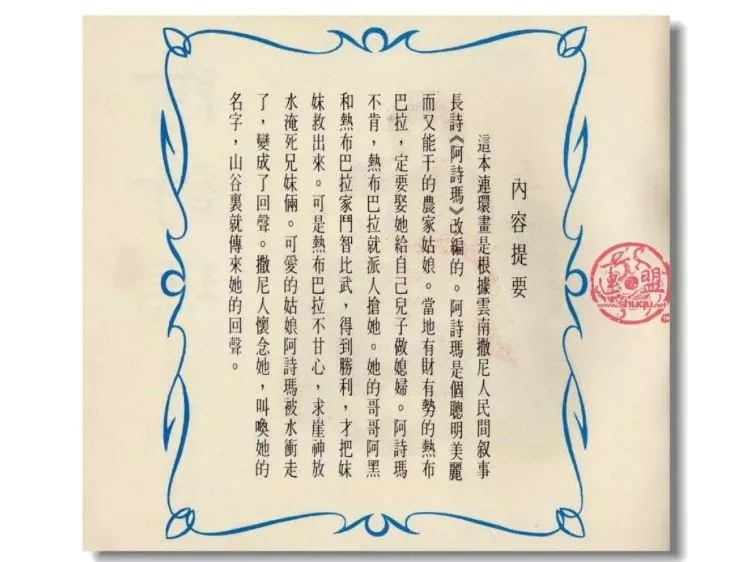 內容提要
這本連環畫是根據雲南撒尼人民間叙事
長詩《阿詩瑪》改編的。阿詩瑪是個聰明美麗
而又能干的農家姑娘。當地有財有勢的熱布
巴拉，定要娶她給自己兒子做媳婦。阿詩瑪
不肯，熱布巴拉就派人搶她。她的哥哥阿黑
和熱布巴拉家鬥智比武，得到勝利，才把妹
妹救出來。可是熱布巴拉不甘心，求崖神放
水淹死兄妹倆。可愛的姑娘阿詩瑪被水衝走
了，變成了回聲。撒尼人懷念她，叫喚她的
名字，山谷裏就傳來她的回聲。
連盟
www.shuqu.net